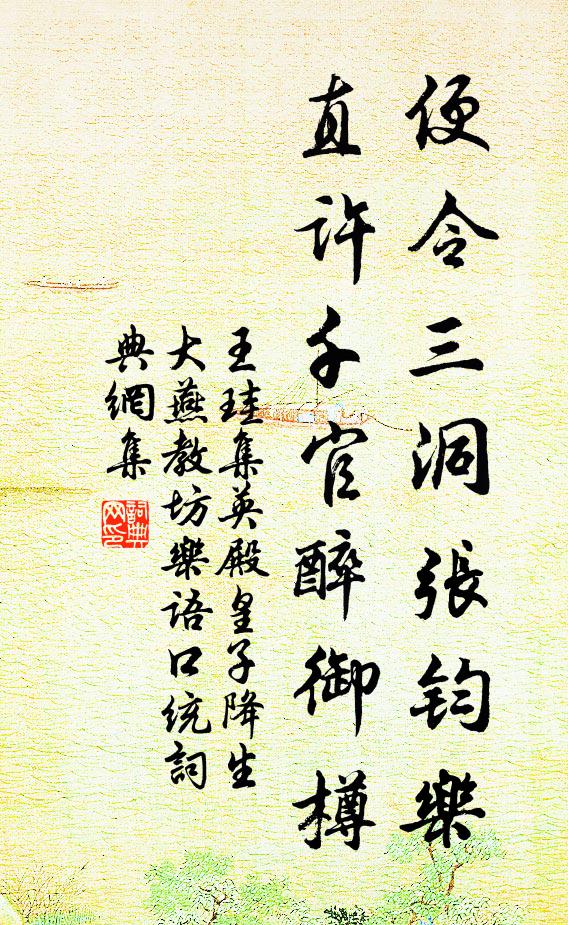 便令三洞張鈞樂
直許千官醉御樽
王珪集英殿皇子降生
大燕教坊樂語口統詞
典網集
詞典
网印